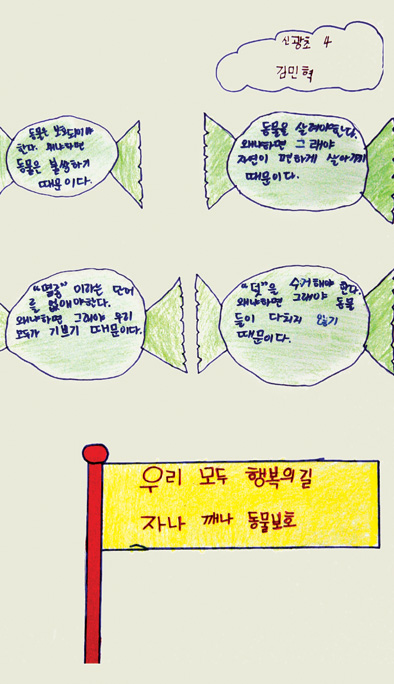 신광초 4
김민혁
동물은 보호되어야
한다. 왜냐하면
동물은 불쌍하기
때문이다.
동물을 살려야한다.
왜냐하면 그래야
자연이 편하게 살아가기
때문이다.
"멸종" 이라는 단어
를 없애야한다.
왜냐하면 그래야 우리
모두가 기쁘기 때문이다.
"덫"을 수거해야 한다.
왜냐하면 그래야 동물
들이 다치지 않기
때문이다.
우리 모두 행복의길
자나 깨나 동물보호